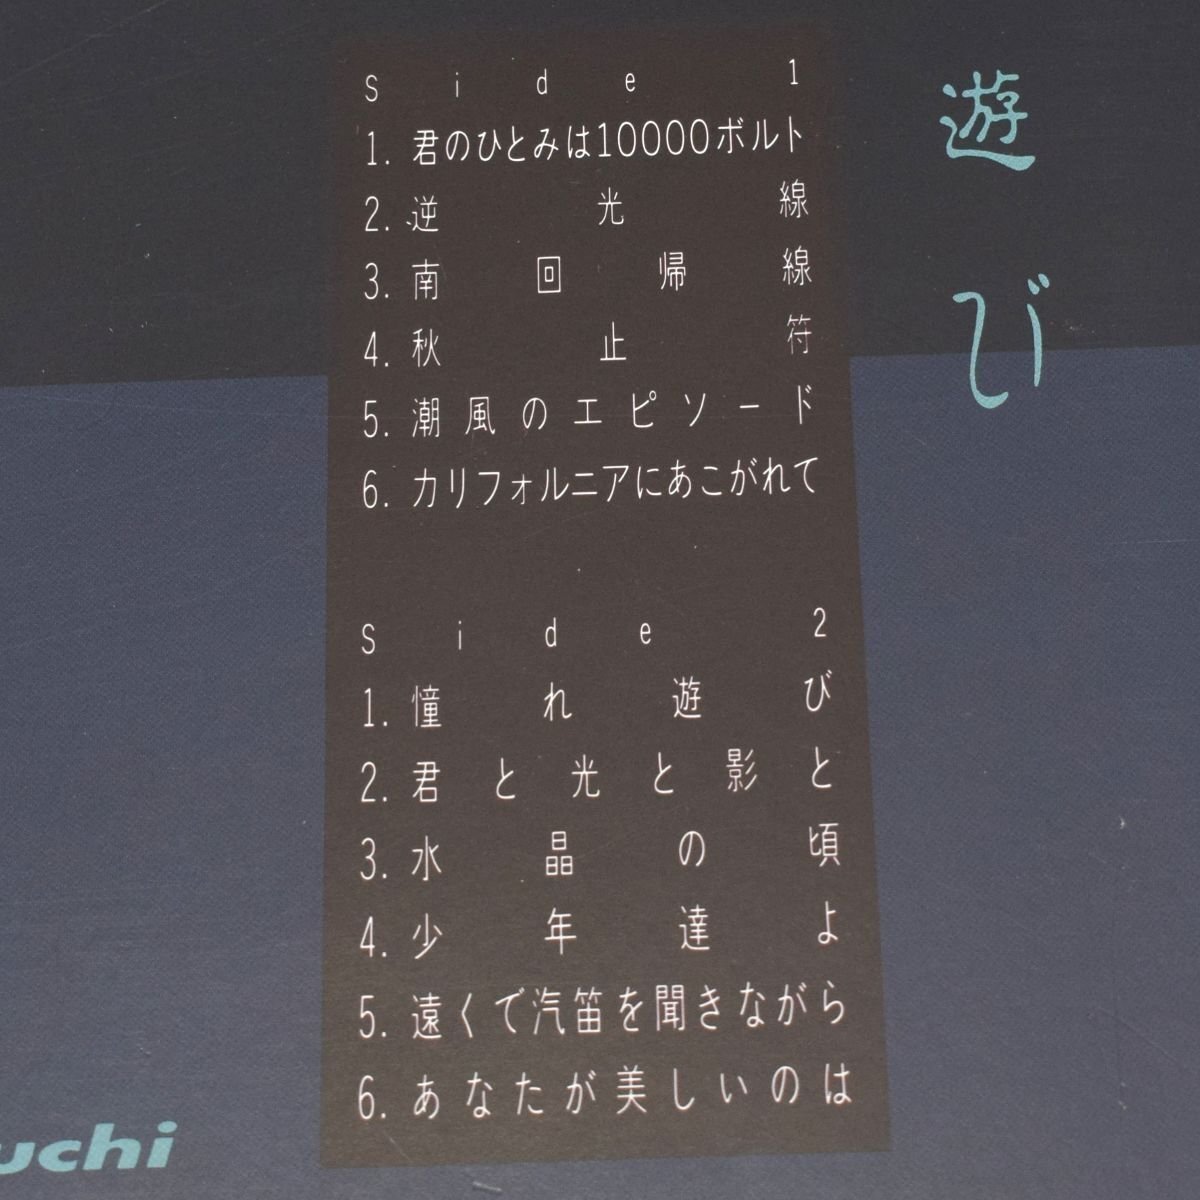 Side 1
1. 君のひとみは10000ボルト
2. 逆光線
3. 南回帰線
4. 秋止符
5. 潮風のエピソード
6. カリフォルニアにあこがれて
Side 2
1. 憧れ遊び
2. 君と光と影と
3. 水晶の頃
4. 少年達よ
5. 遠くで汽笛を聞きながら
6. あなたが美しいのは
遊び
uchi